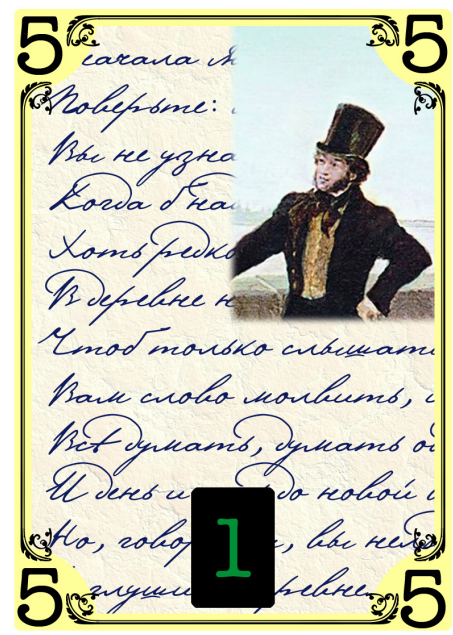 5 5
Сначала я
Поверьте:
Вы не узна
Когда б на
Хоть редко
В деревне н
Чтоб только слышать
Вам слово молвить, и
Всё думать, думать об
И день и до новой в
1
Но, говор , вы нелю
глуши ревне
5 5